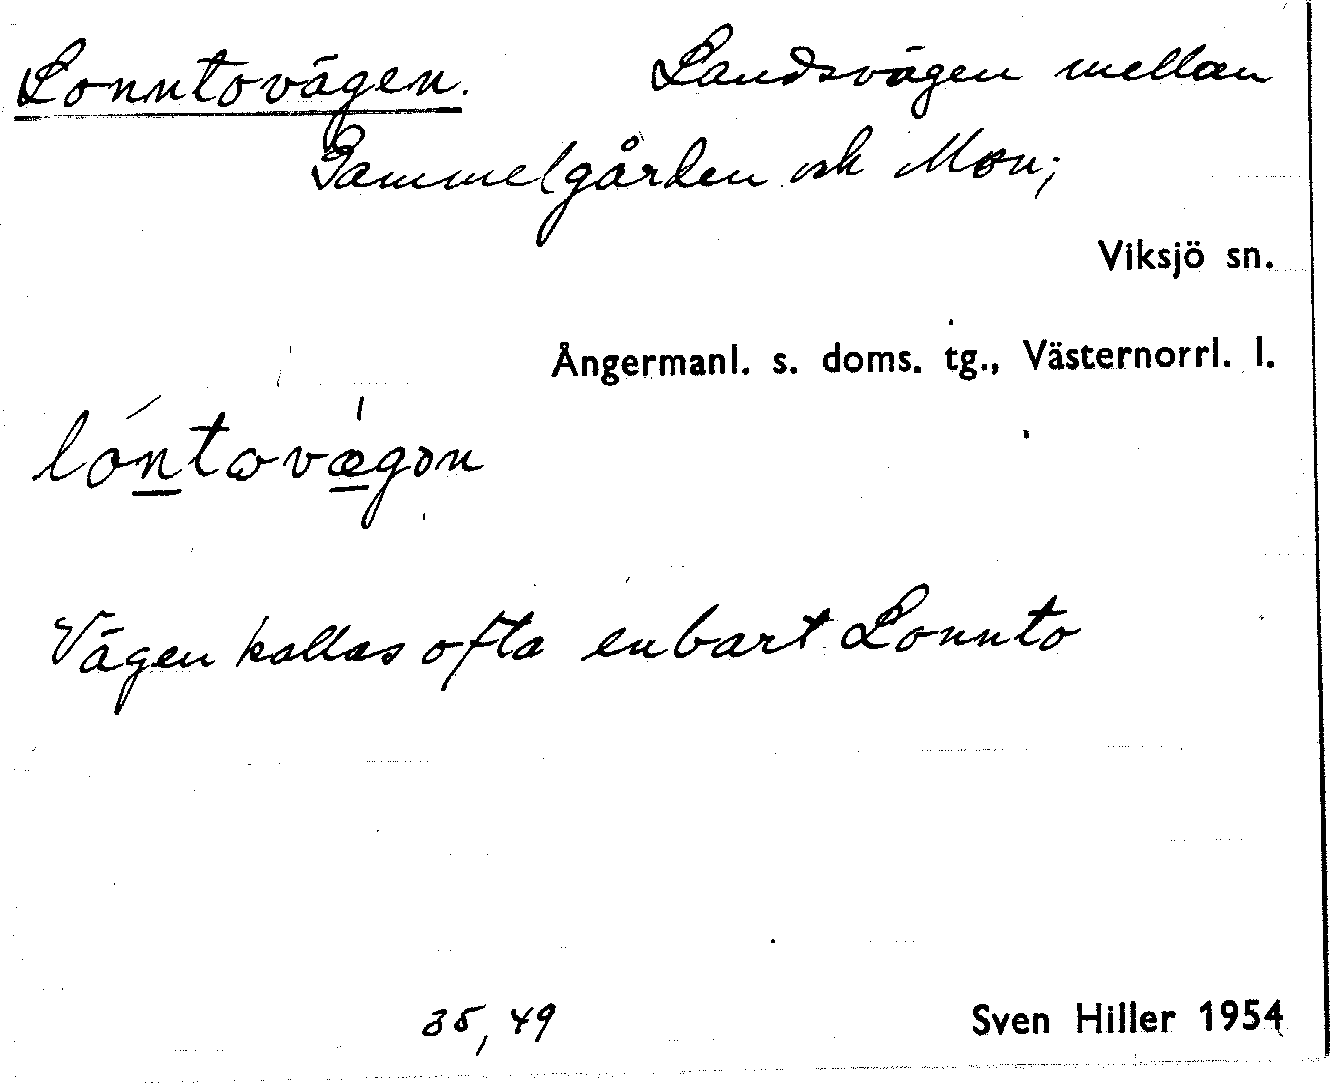 Lonntovägen. Landsvägen mellan
Gammelgården och Mon;
Viksjö sn.
Ångermanl. s. doms. tg., Västernorrl. l.
Vägen kallas ofta enbart Lonnto
35, 49
Sven Hiller 1954